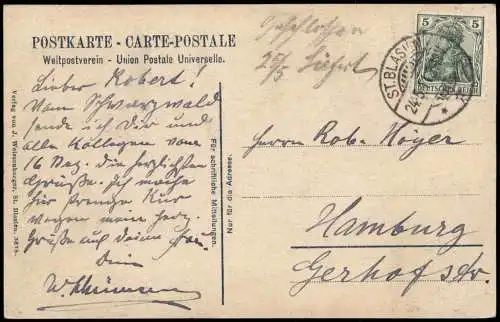 POSTKARTE - CARTE-POSTALE
Weltpostverein - Union Postale Universelle.
Lieber Robert!
Vom Schwarzwald
sende ich Dir und
alle Kollegen vom
16 Dez. die herzlichsten
Grüße. Ich mache
hier strenge Kur
wegen mein Herz.
Grüße auch Deine Frau.
Dein
Verlag von J. Weissenberger, St. Blasien.
Für schriftliche Mitteilungen.
Nur für die Adresse.
25/5
5
DEUTSCHES REICH
ST. BLASIEN
24.5
Herrn Rob. Höger
Hamburg
Gerhofstr.